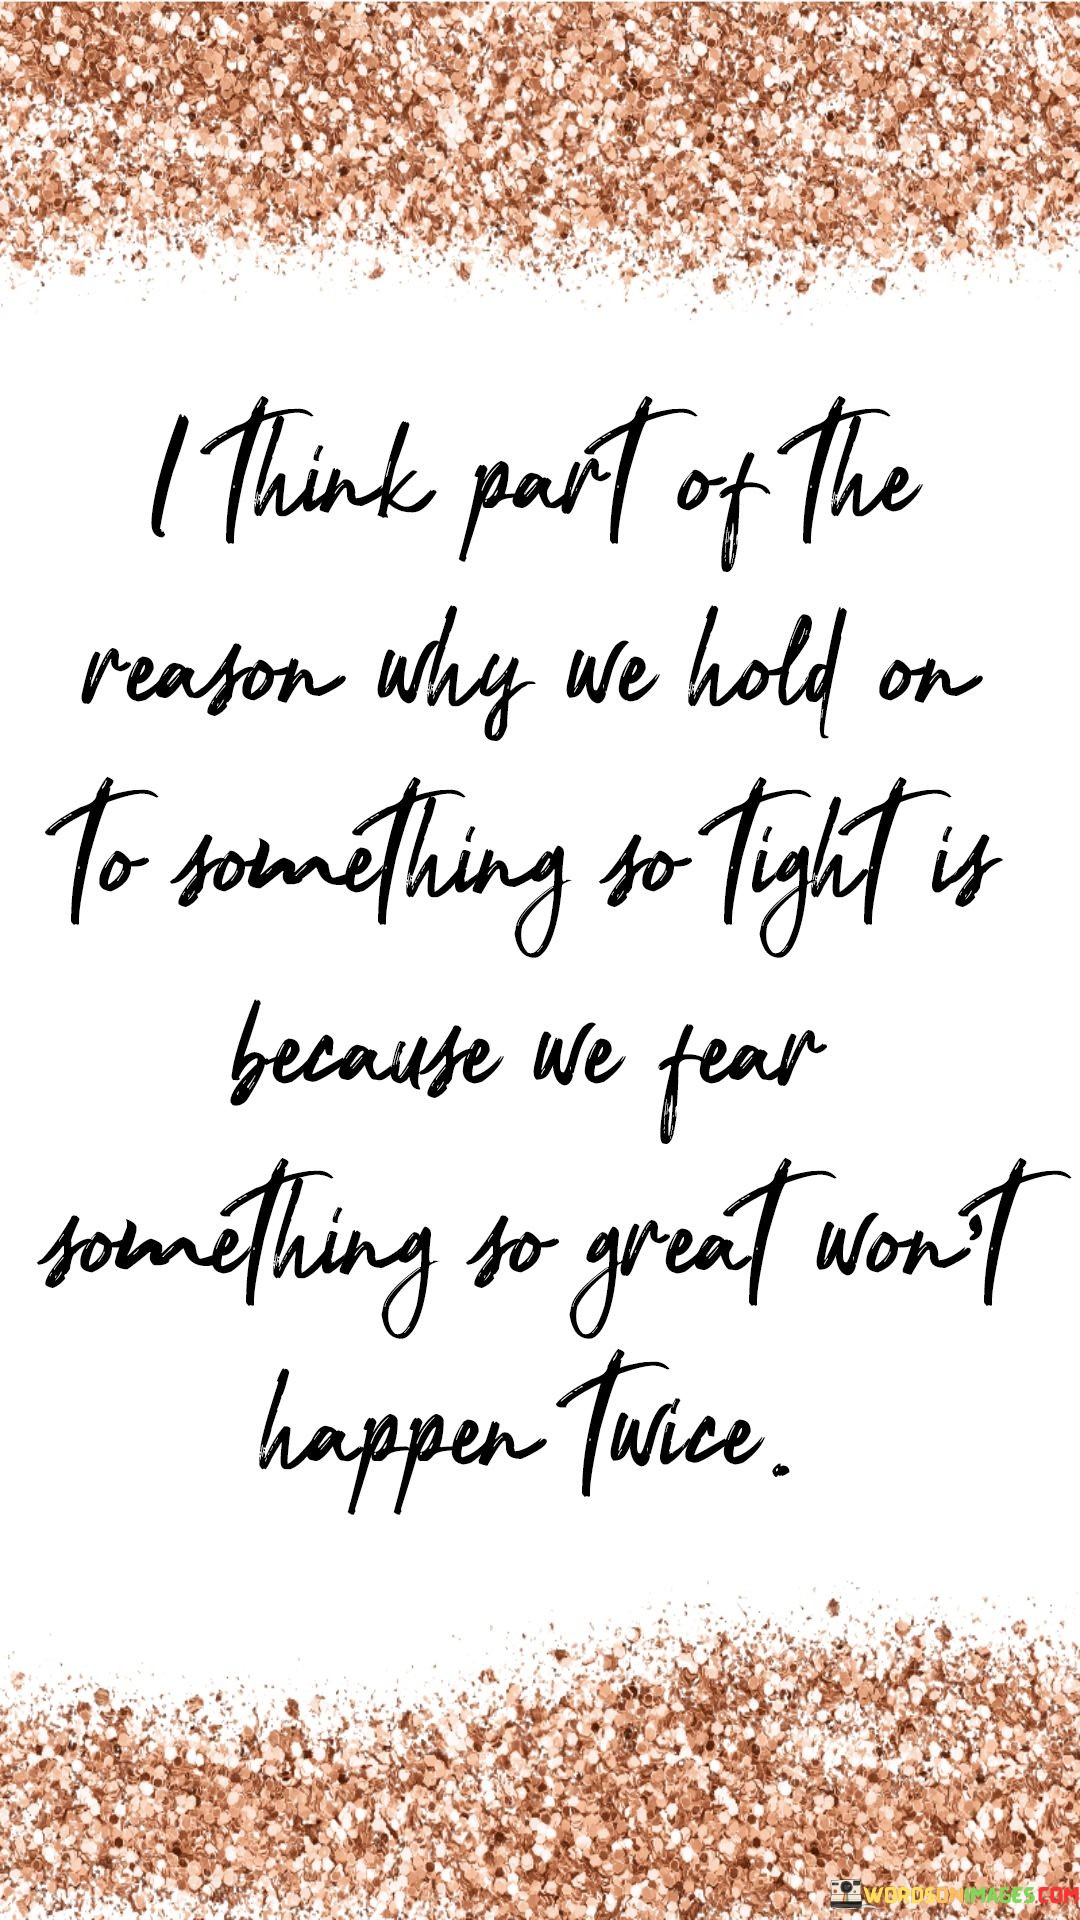 I think part of the
reason why we hold on
to something so tight is
because we fear
something so great won't
happen twice.
WORDSONIMAGES.COM